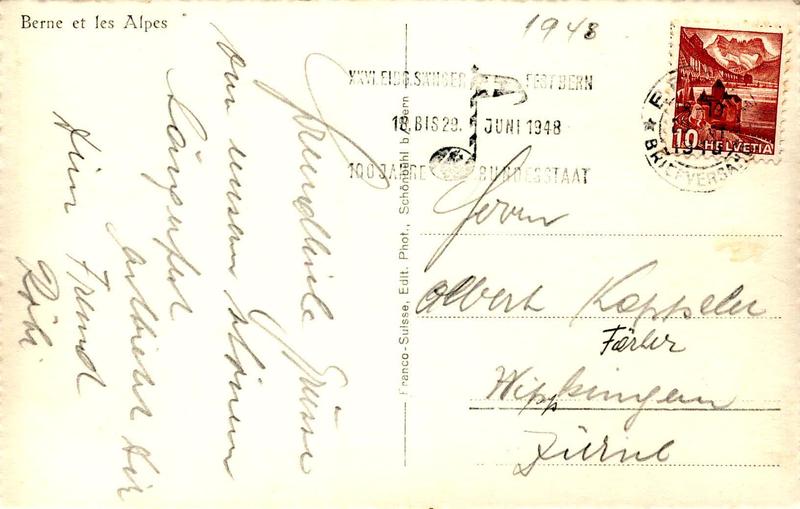 Berne et les Alpes
1948
XXVI. EIDG. SÄNGERFEST BERN
18. BIS 29. JUNI 1948
100 JAHRE BUNDESSTAAT
10 HELVETIA
BRIEFVERSAND
Franco-Suisse, Edit. Phot., Schönbühl b/Bern
Freundliche Grüsse
von unserm schönen
Sängerfest
entbietet Dir
Dein Freund
Röbi
Herrn
Albert Koppeler
Färber
Wippkingen
Zürich